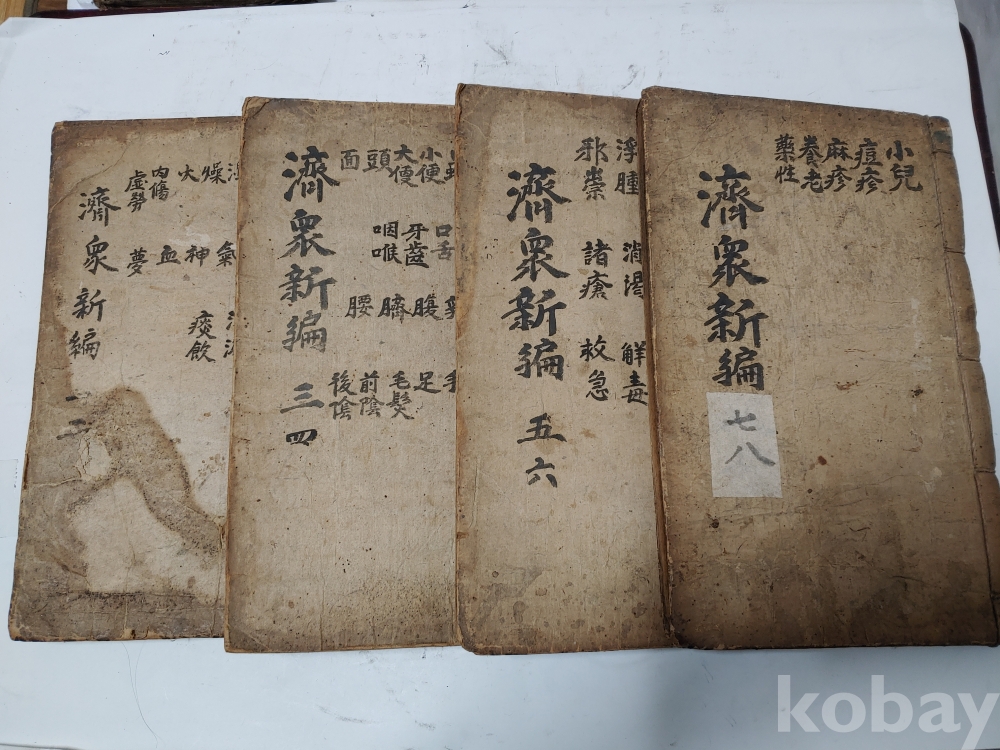 小兒
痘疹
麻疹
養老
藥性
濟衆新編
七八
浮腫 消渴 解毒
邪祟 諸瘡 救急
濟衆新編
五六
口舌
小便 牙齒 腹 足
大便 咽喉 臍 毛髮
頭 前陰
面 腰 後陰
濟衆新編
三四
氣
燥 神 痰飮
火 血
內傷
虛勞 夢
濟衆新編
一二
kobay